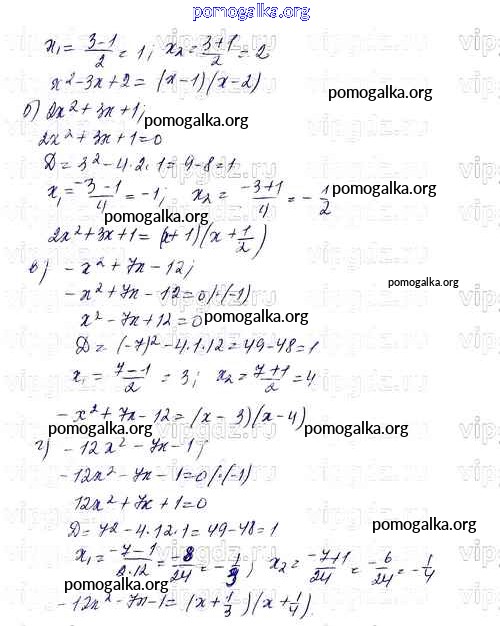 pomogalka.org
x₁ = (3-1)/2 = 1; x₂ = (3+1)/2 = 2
x² - 3x + 2 = (x-1)(x-2)
pomogalka.org
б) 2x² + 3x + 1;
pomogalka.org
2x² + 3x + 1 = 0
D = 3² - 4·2·1 = 9 - 8 = 1
pomogalka.org
x₁ = (-3-1)/4 = -1; x₂ = (-3+1)/4 = -1/2
pomogalka.org
pomogalka.org
2x² + 3x + 1 = (x+1)(x+1/2)
в) -x² + 7x - 12;
pomogalka.org
-x² + 7x - 12 = 0 /·(-1)
x² - 7x + 12 = 0
pomogalka.org
D = (-7)² - 4·1·12 = 49 - 48 = 1
x₁ = (7-1)/2 = 3; x₂ = (7+1)/2 = 4
-x² + 7x - 12 = (x-3)(x-4)
pomogalka.org
pomogalka.org
г) -12x² - 7x - 1;
-12x² - 7x - 1 = 0 /·(-1)
12x² + 7x + 1 = 0
D = 7² - 4·12·1 = 49 - 48 = 1
pomogalka.org
x₁ = (-7-1)/(2·12) = -8/24 = -1/3; x₂ = (-7+1)/24 = -6/24 = -1/4
pomogalka.org
-12x² - 7x - 1 = (x+1/3)(x+1/4)